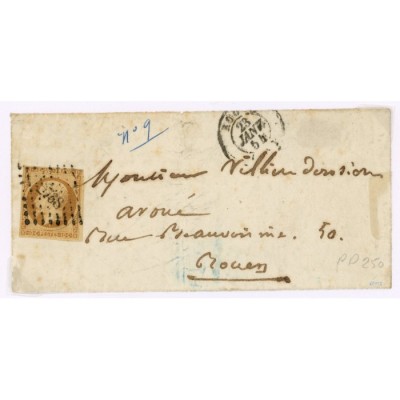 n° 9
23
JANV.
54
Monsieur
avoué
Rue Beauvoisine. 50.
Rouen
PP 250